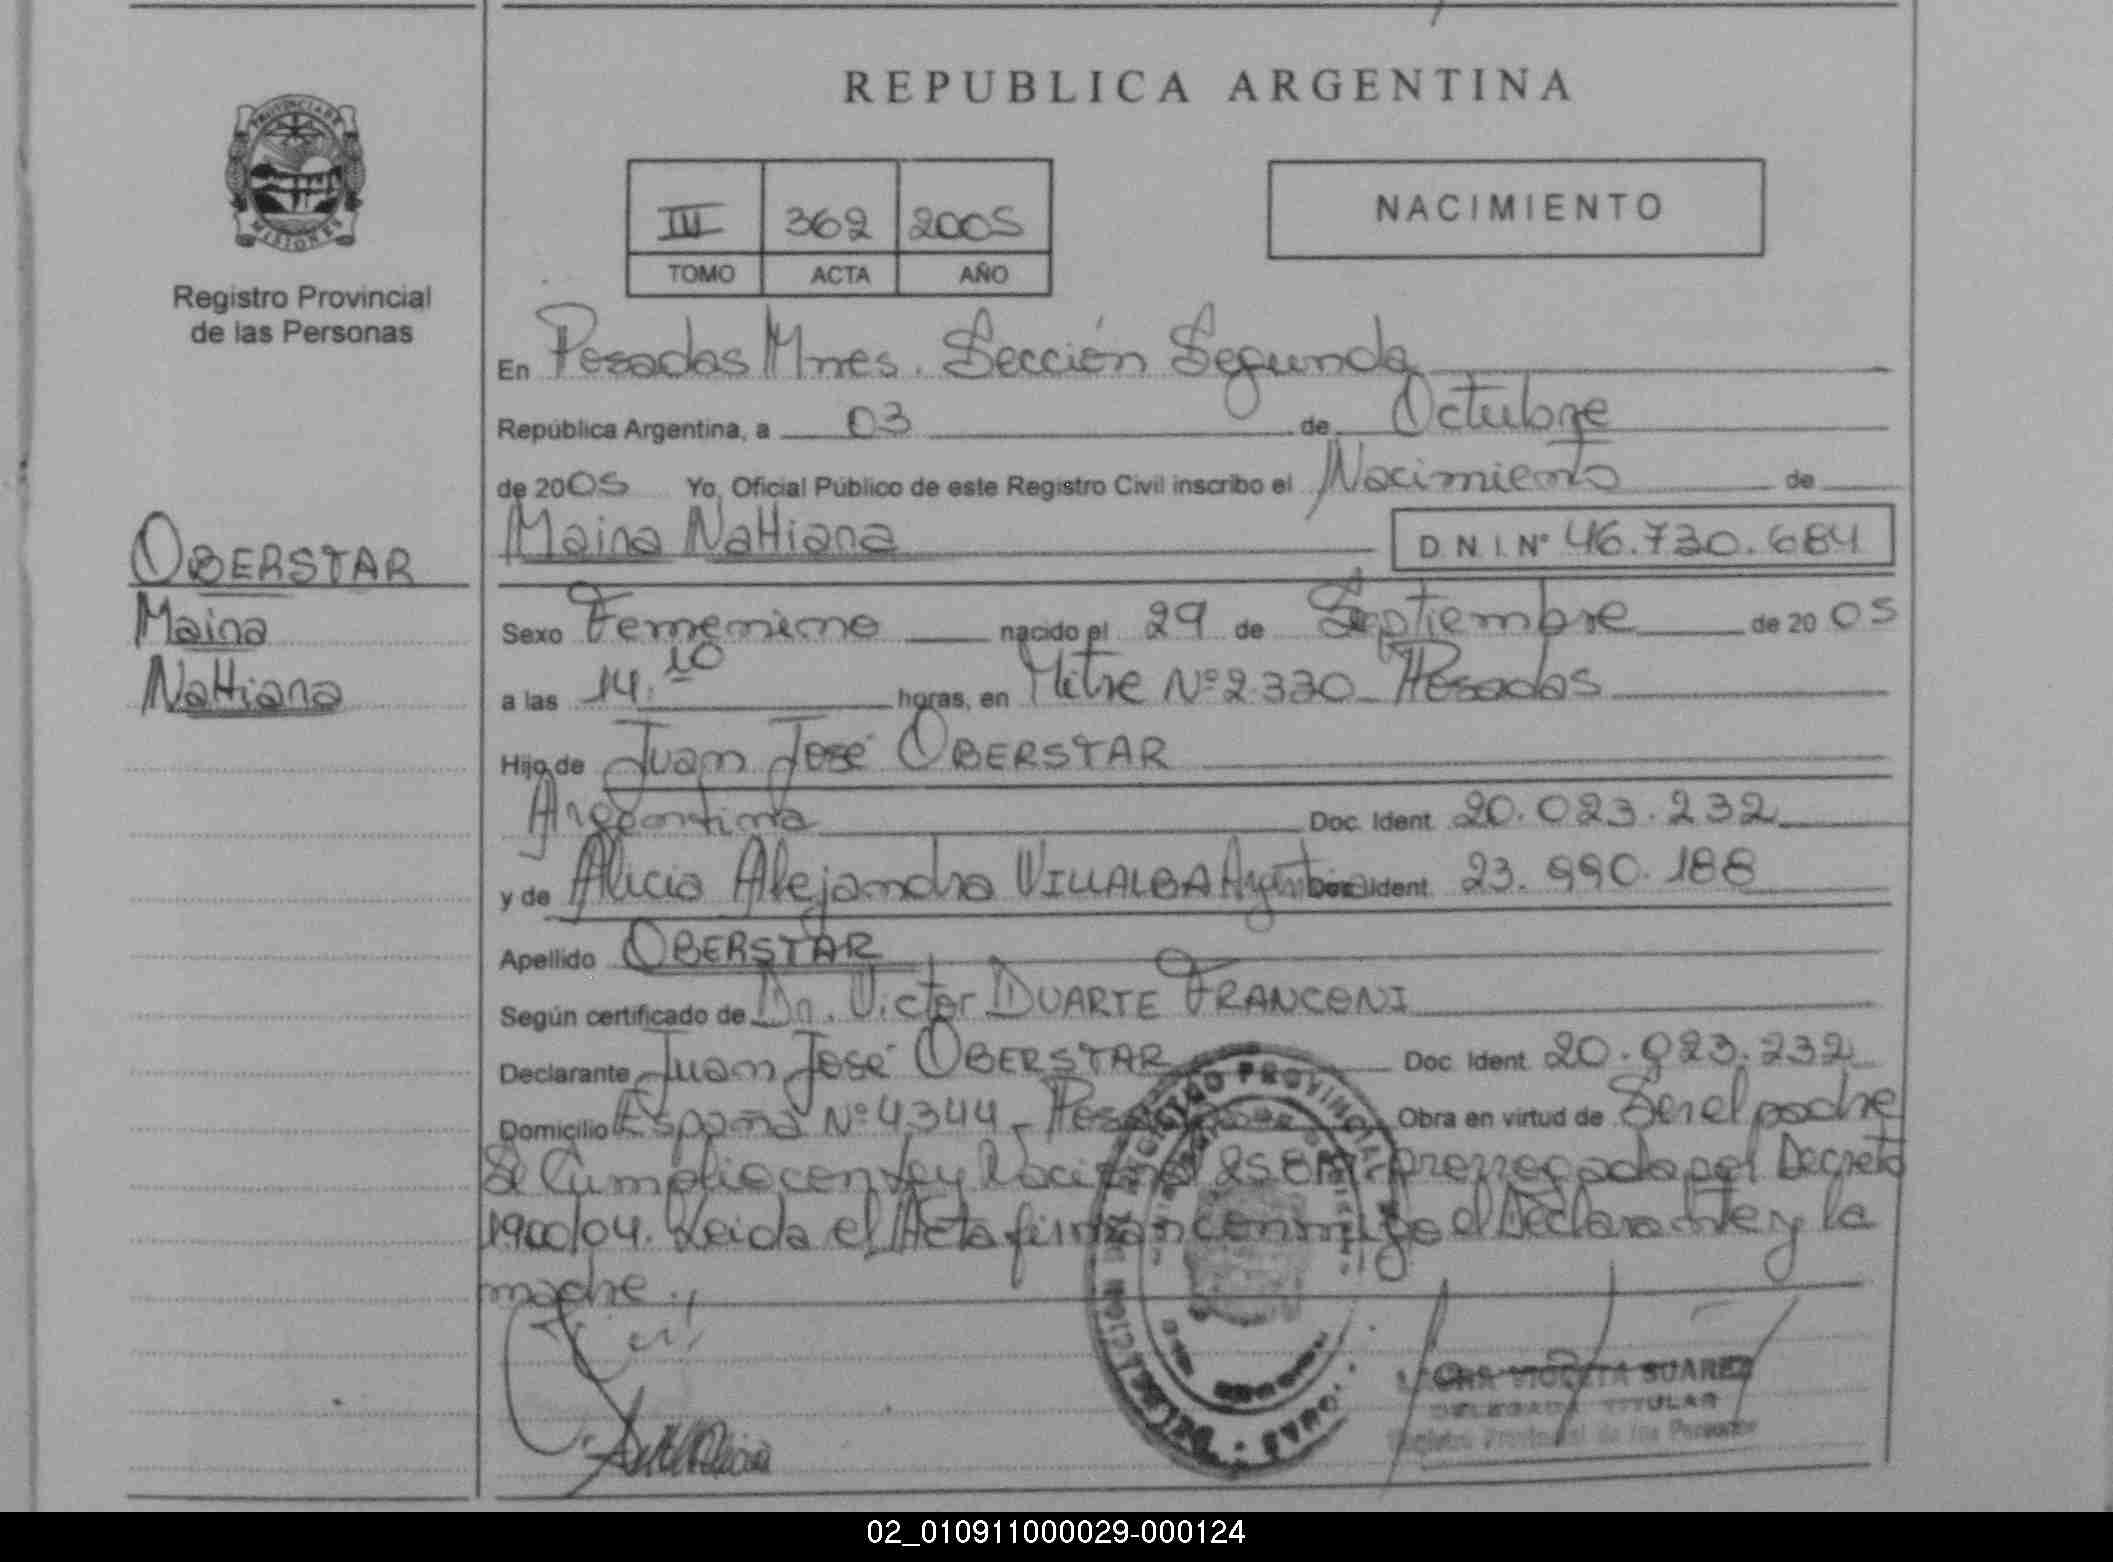 REPUBLICA ARGENTINA
PROVINCIA DE
MISIONES
Registro Provincial
de las Personas
III 362 2005
TOMO ACTA AÑO
NACIMIENTO
En Posadas Mnes. Sección Segunda
República Argentina, a 03 de Octubre
de 2005 Yo, Oficial Público de este Registro Civil inscribo el Nacimiento de
Maina Nattiana D.N.I. Nº 46.730.684
OBERSTAR
Maina
Nattiana
Sexo Femenino nacido el 29 de Septiembre de 2005
a las 14.10 horas, en Mitre Nº 2.330 Posadas
Hijo de Juan José OBERSTAR
Argentina Doc. Ident. 20.023.232
y de Alicia Alejandra VILLALBA Argentina Doc. Ident. 23.990.188
Apellido OBERSTAR
Según certificado de Dr. Victor DUARTE FRANCONI
Declarante Juan José OBERSTAR Doc. Ident. 20.023.232
Domicilio España Nº 4.344 - Posadas Obra en virtud de Ser el padre
Se Cumplio con Ley Nacional prorrogada por Decreto
1900/04. Leida el Acta firman conmigo el Declarante y la
madre.
REGISTRO PROVINCIAL
VIOLETA SUAREZ
DELEGADA TITULAR
Registro Provincial de las Personas
02_010911000029-000124